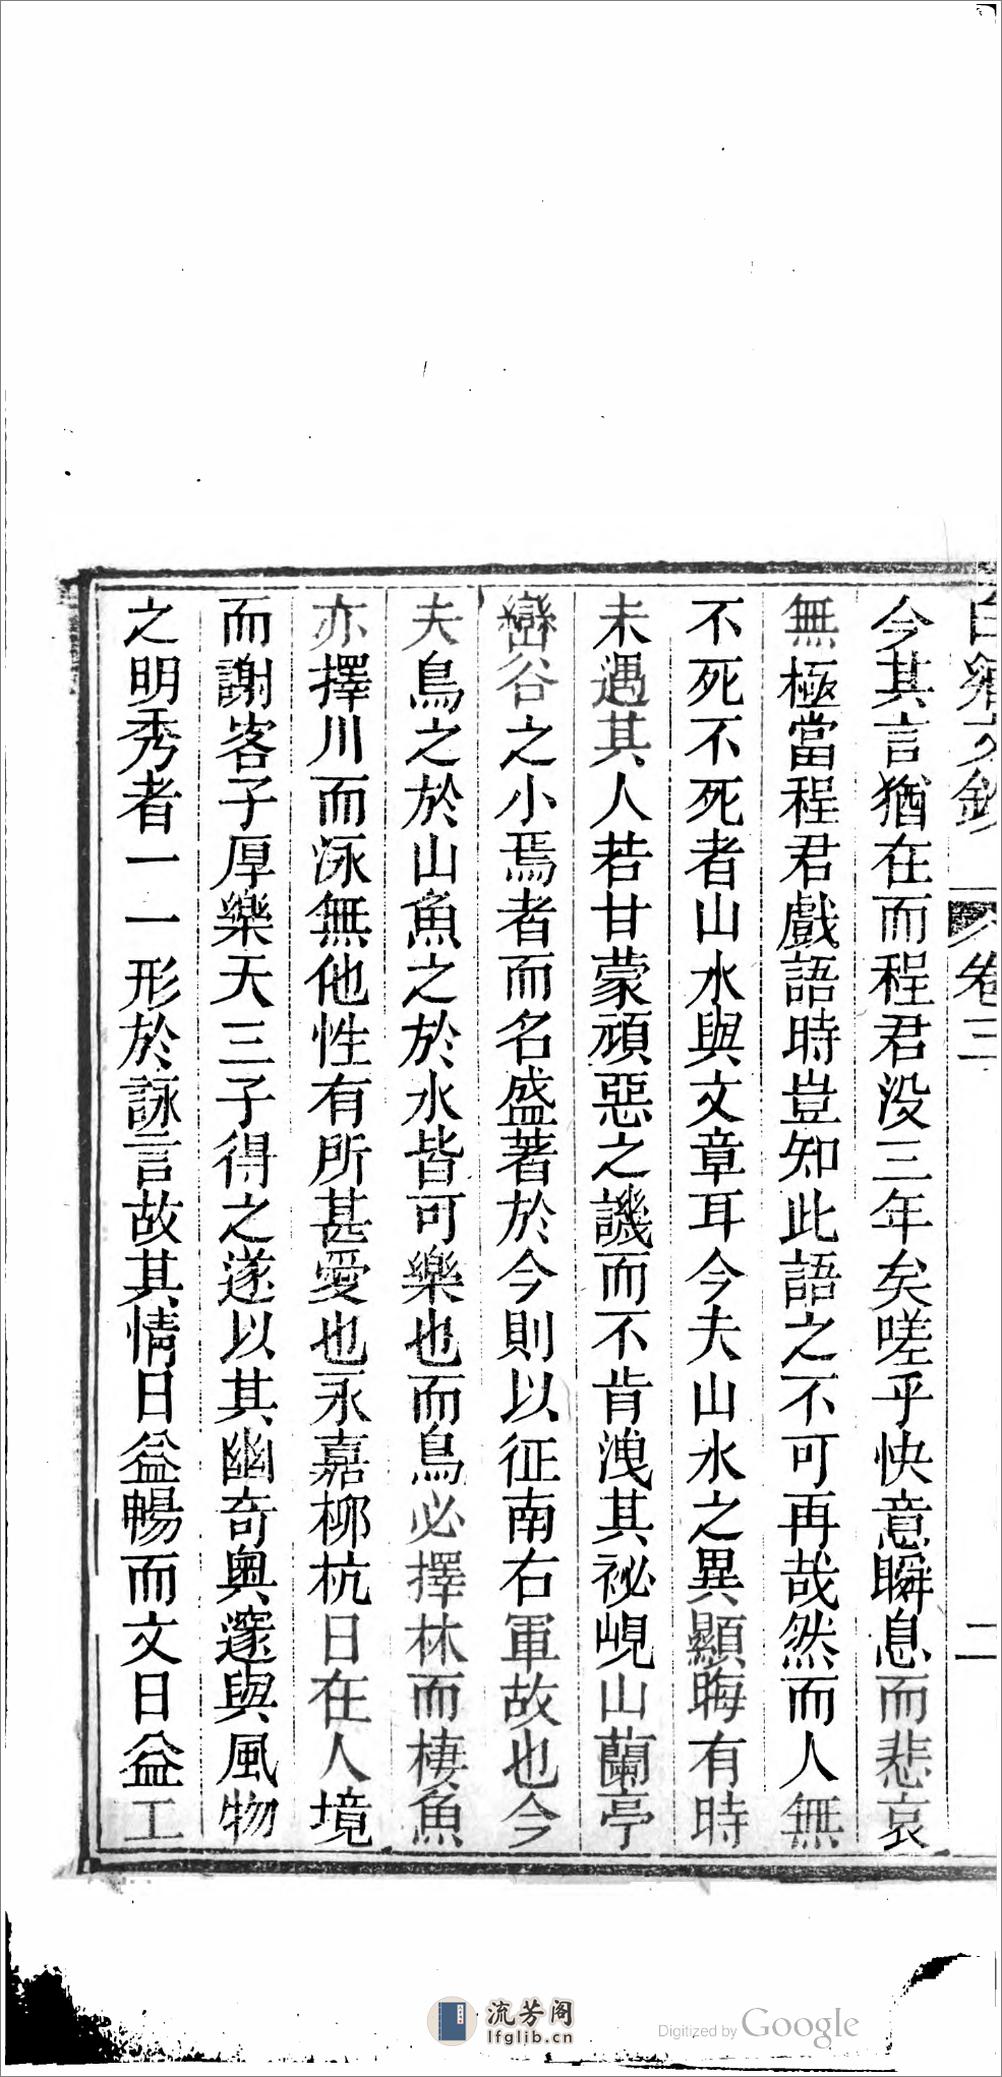 今其言猶在而程君没三年矣嗟乎快意瞬息而悲哀
無極當程君戲語時豈知此語之不可再哉然而人無
不死不死者山水與文章耳今夫山水之異顯晦有時
未遇其人若甘蒙頑惡之譏而不肯洩其祕峴山蘭亭
巒谷之小焉者而名盛著於今則以征南右軍故也今
夫鳥之於山魚之於水皆可樂也而鳥必擇林而棲魚
亦擇川而泳無他性有所甚愛也永嘉柳杭日在人境
而謝客子厚樂天三子得之遂以其幽奇奧邃與風物
之明秀者一一形於詠言故其情日益暢而文日益工
卷三
二
流芳阁
lfglib.cn
Digitized by Google